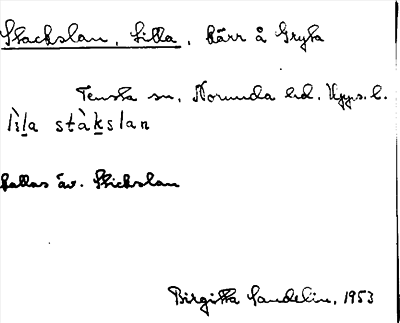 Stackslan, Lilla, kärr å Gryta
Tensta sn, Norunda hd. Upps. l.
lìla stàkslan
kallas äv. Stickslan
Birgitta Sandelin, 1953